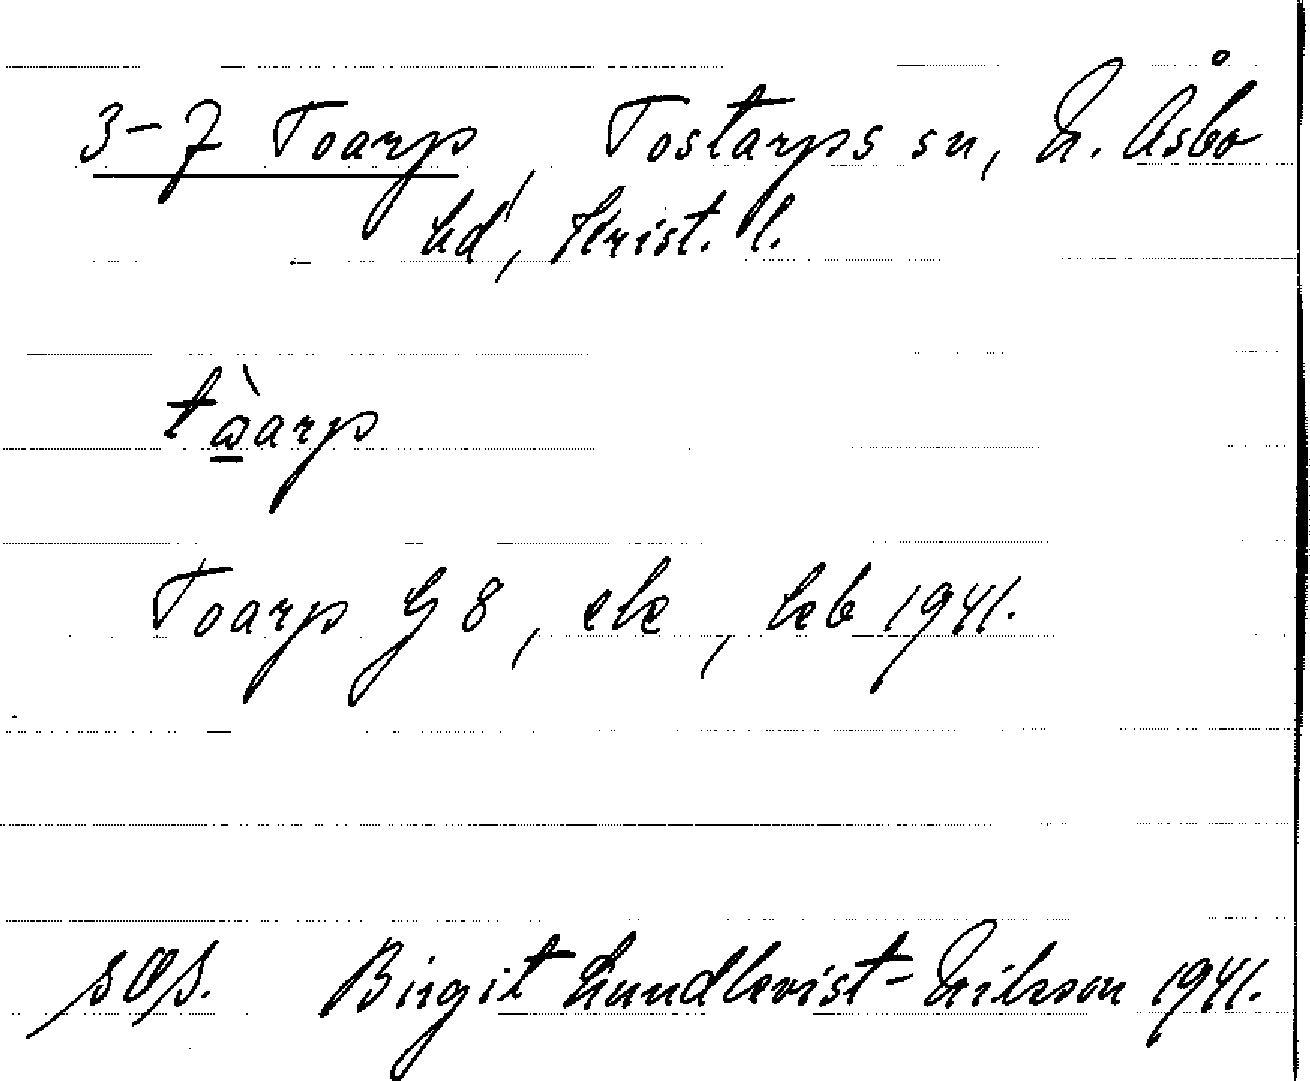 3-7 Toarp, Tostarps sn, N. Åsbo
hd, Krist. l.
tòarp
Toarp G 8, ek, kb 1941.
SOS. Birgit Lundkvist-Nilsson 1941.